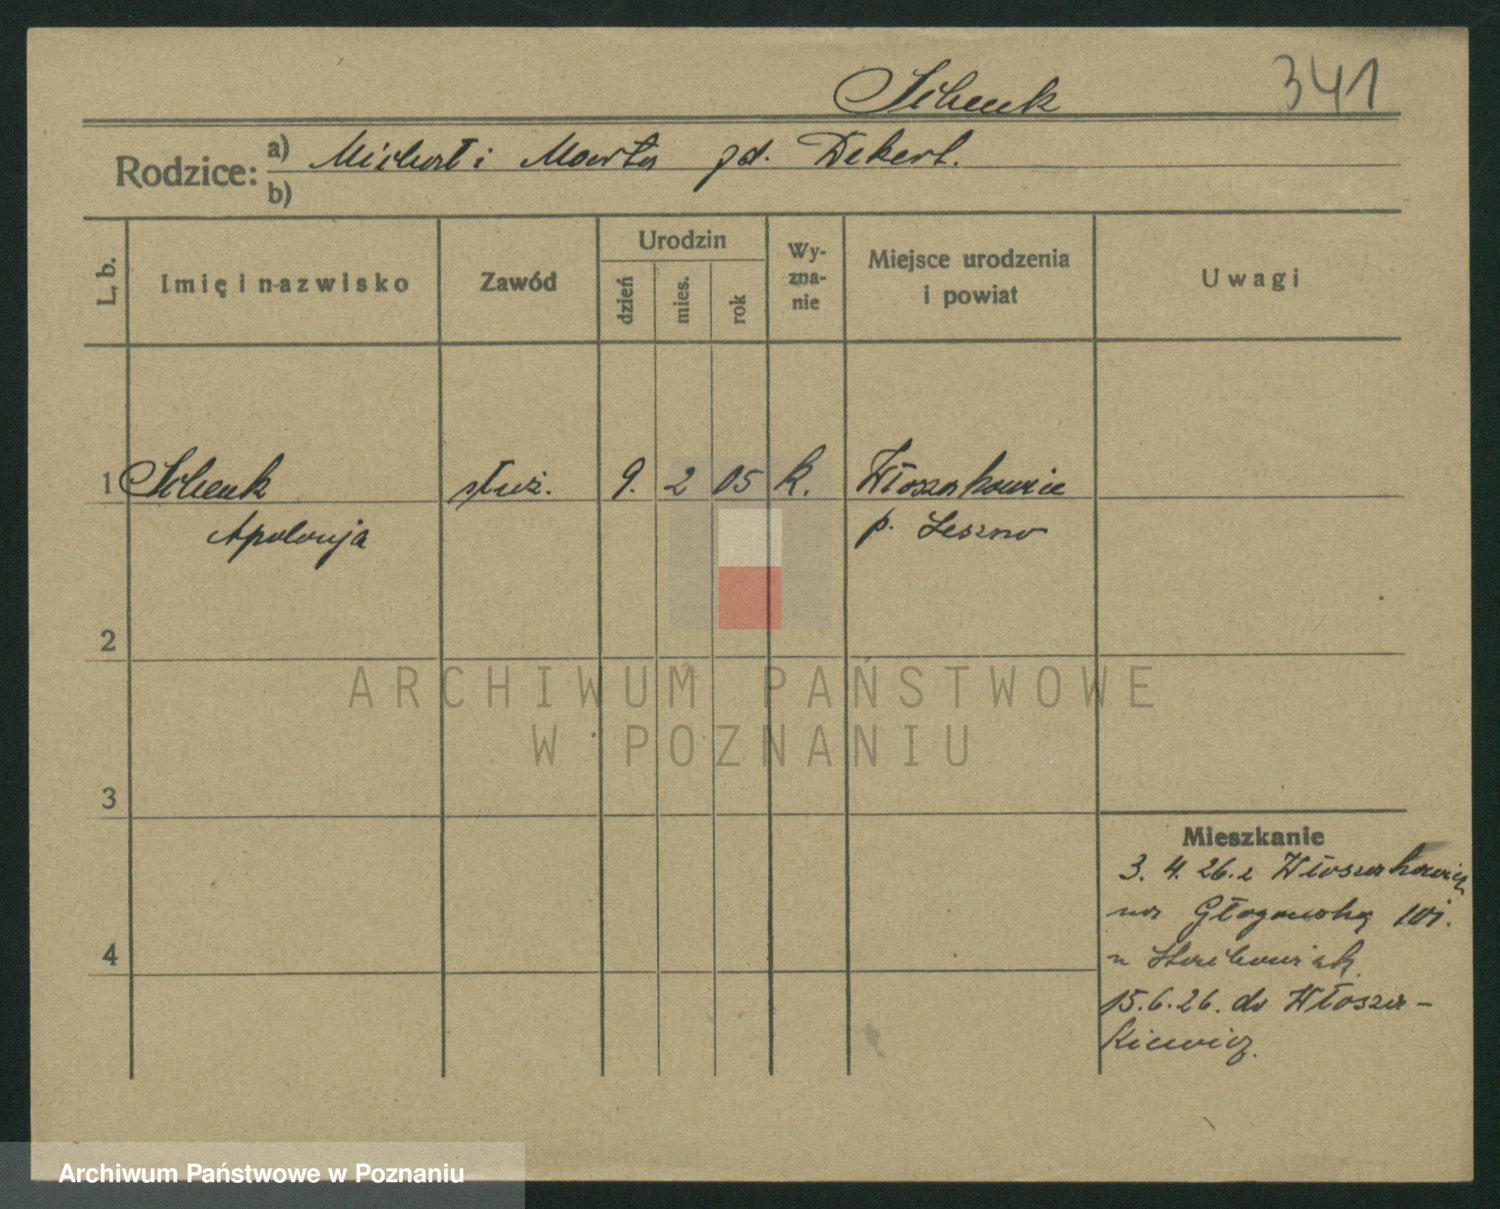 Schenk
341
Rodzice: a) Michał i Marta zd. Dekert.
b)
L. b.
Imię i nazwisko
Zawód
Urodzin
dzień
mies.
rok
Wy-
zna-
nie
Miejsce urodzenia
i powiat
Uwagi
1 Schenk służ. 9. 2 05 k. Włoszakowice
Apolonja p. Leszno
2
ARCHIWUM PAŃSTWOWE
W POZNANIU
3
Mieszkanie
3. 4. 26. z Włoszakowic
na Głogowską 101.
u
4
15.6.26. do Włosza-
kiewicz.
Archiwum Państwowe w Poznaniu